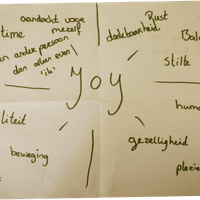 aandacht voor mezelf
time
een ander persoon
dan alleen even
'ik'
dankbaarheid
Rust
Bala
stilte
Joy
liteit
beweging
gezelligheid
huma
plezie